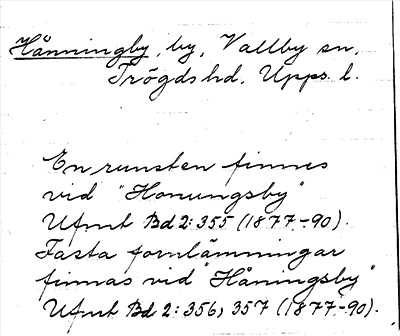 Hånningby, by, Vallby sn,
Trögds hd. Upps. l.
En runsten finnes
vid "Honungsby"
Ufmt Bd 2:355 (1877-90).
Fasta fornlämningar
finnas vid "Håningsby"
Ufmt Bd 2:356, 357 (1877-90).